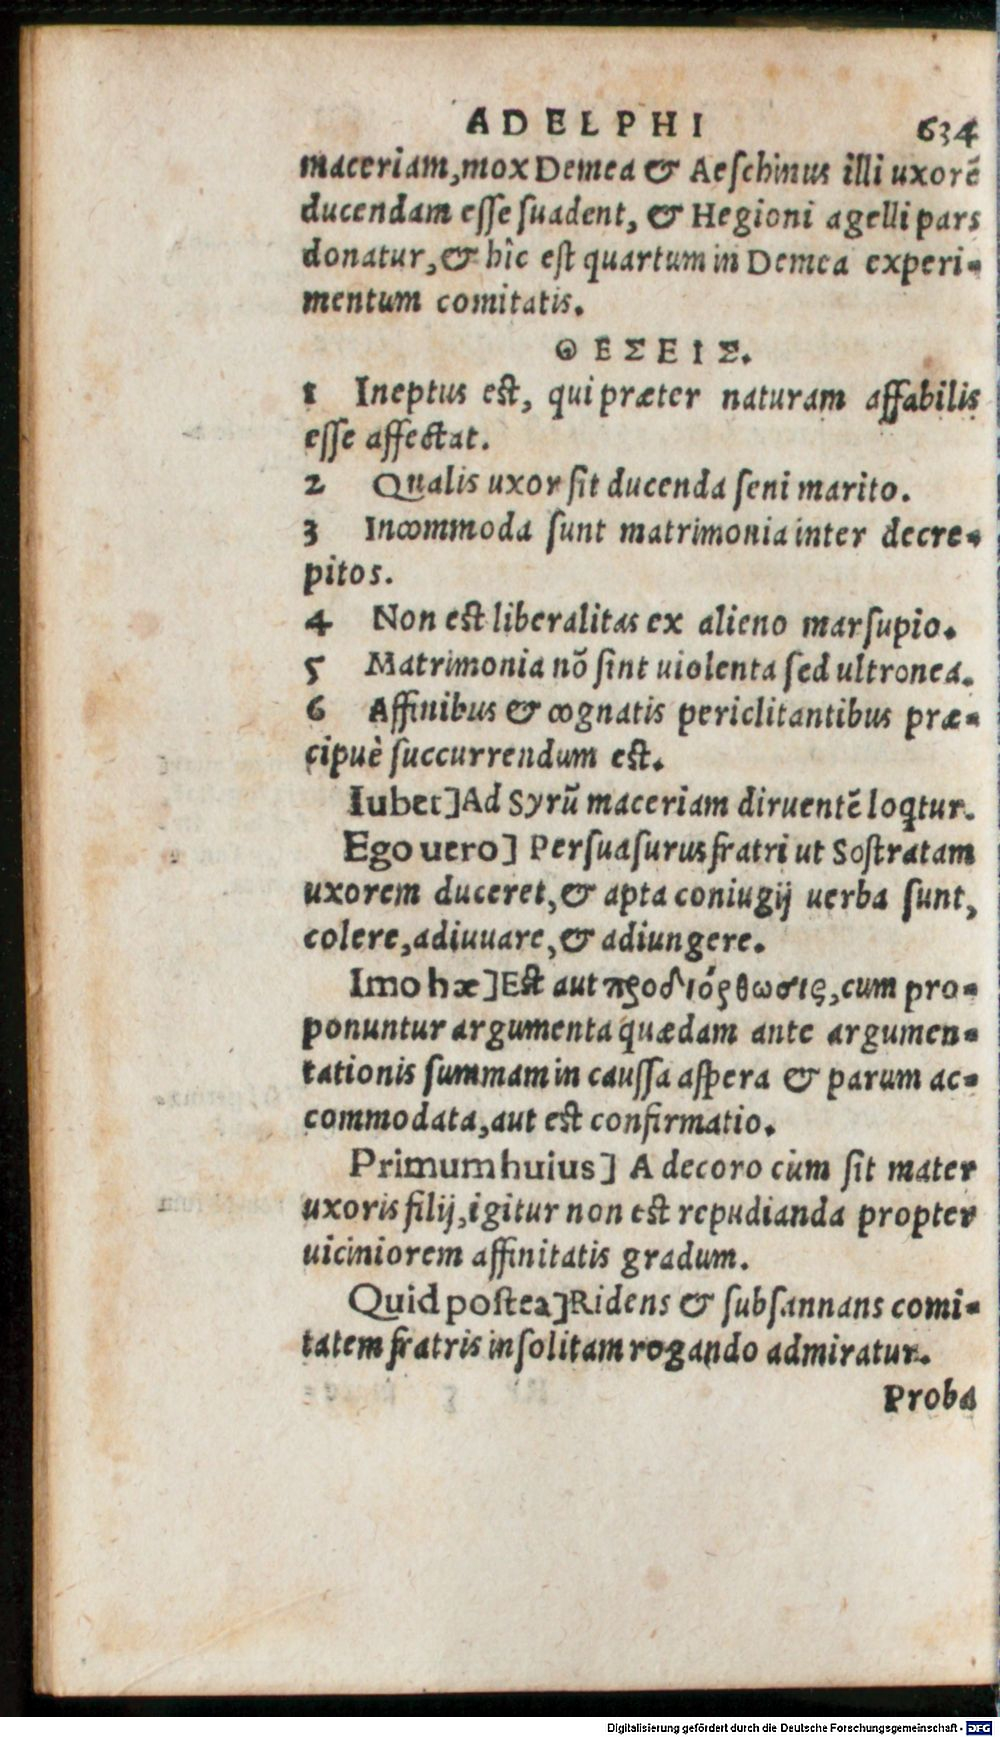 ADELPHI 634
maceriam, mox Demea & Aeschinus illi uxorē
ducendam esse suadent, & Hegioni agelli pars
donatur, & hîc est quartum in Demea experi-
mentum comitatis.
ΘΕΣΕΙΣ.
1 Ineptus est, qui præter naturam affabilis
esse affectat.
2 Qualis uxor sit ducenda seni marito.
3 Incommoda sunt matrimonia inter decre-
pitos.
4 Non est liberalitas ex alieno marsupio.
5 Matrimonia nō sint uiolenta sed ultronea.
6 Affinibus & cognatis periclitantibus præ-
cipuè succurrendum est.
Iubet] Ad Syrū maceriam diruentē loqtur.
Ego uero] Persuasurus fratri ut Sostratam
uxorem duceret, & apta coniugij uerba sunt,
colere, adiuuare, & adiungere.
Imo hæ] Est aut προδιόρθωσις, cum pro-
ponuntur argumenta quædam ante argumen-
tationis summam in caussa aspera & parum ac-
commodata, aut est confirmatio.
Primum huius] A decoro cùm sit mater
uxoris filij, igitur non est repudianda propter
uiciniorem affinitatis gradum.
Quid postea] Ridens & subsannans comi-
tatem fratris insolitam rogando admiratur.
Proba
Digitalisierung gefördert durch die Deutsche Forschungsgemeinschaft - DFG